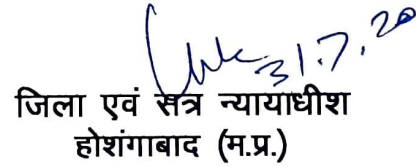 31.7.20
जिला एवं सत्र न्यायाधीश
होशंगाबाद (म.प्र.)